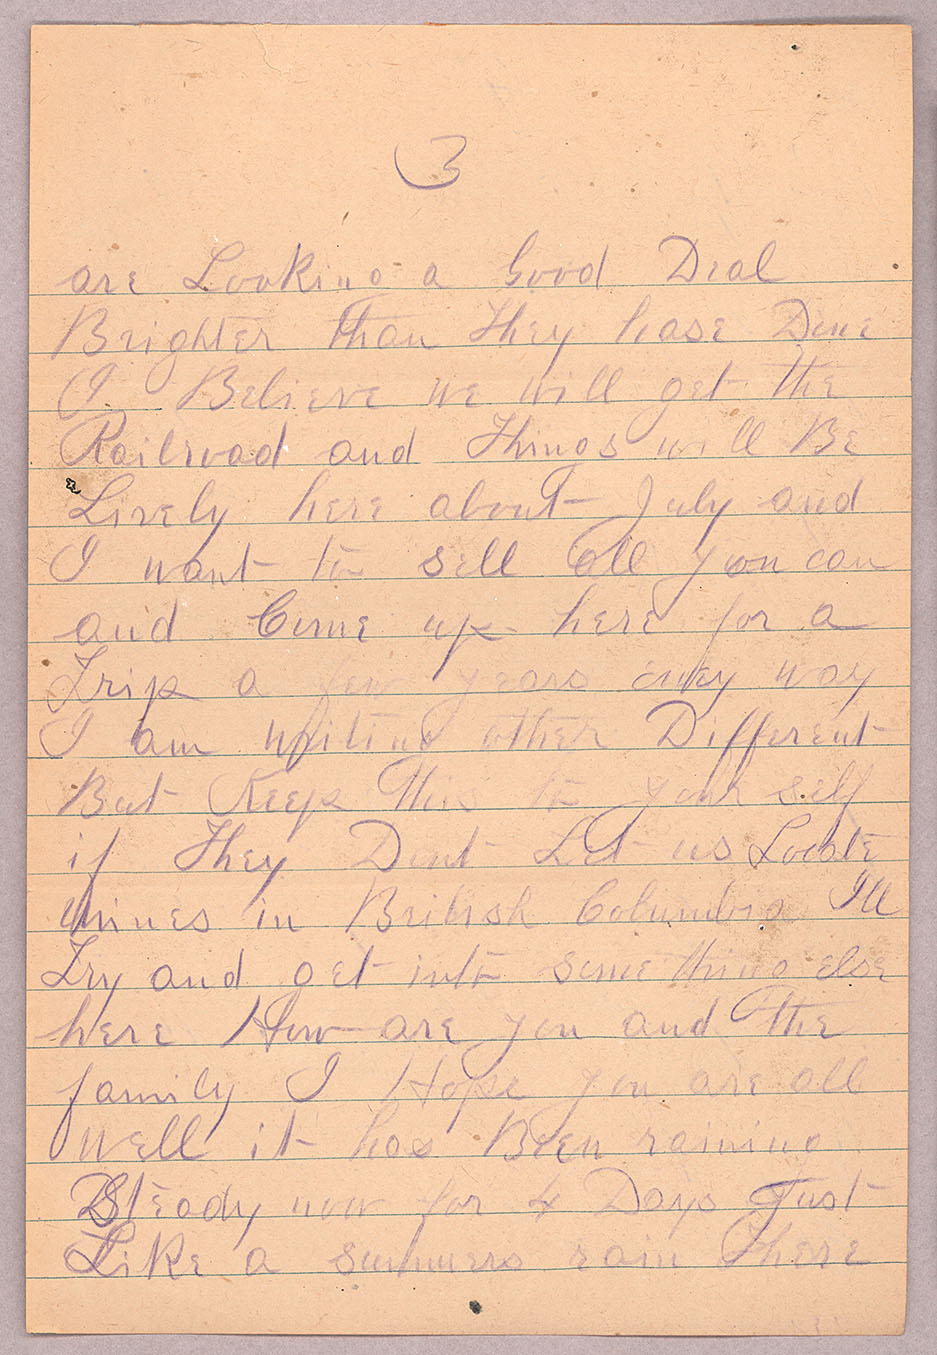 3
are Looking a Good Deal
Brighter than They have Done
I Believe we will get the
Railroad and Things will Be
Lively here about July and
I want to sell all you can
and Come up here for a
Trip a few years any way
I am writing other Different
But Keep this to your self
if They Dont Let us Locate
mines in British Columbia Ill
Try and get into something else
here How are you and the
family I Hope you are all
well it has Been raining
Steady now for 4 Days Just
Like a summers rain There